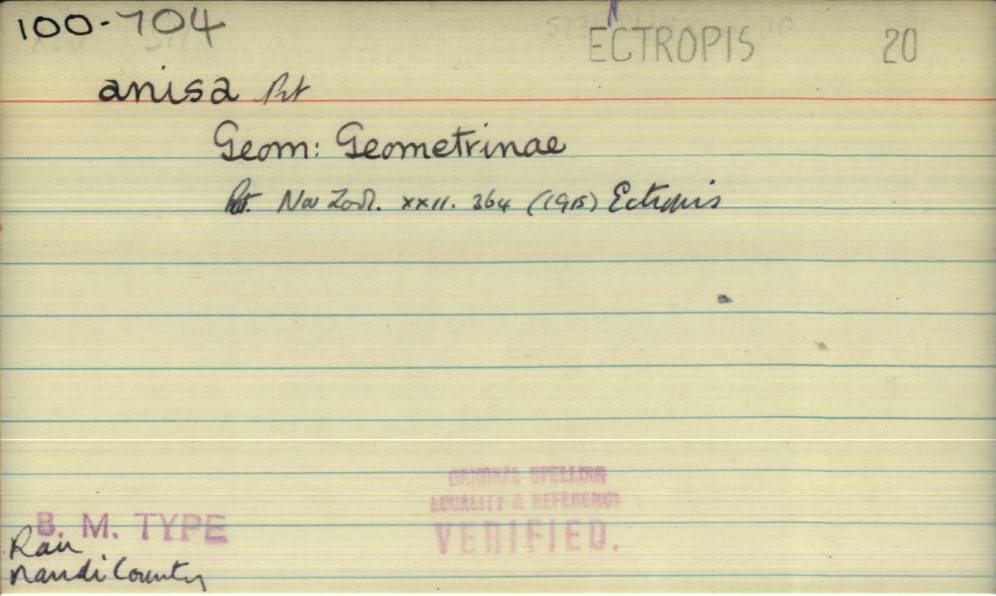 100-704
ECTROPIS 20
anisa Prt
Geom: Geometrinae
Prt. Nov Zool. xxii. 364 (1915) Ectropis
ORIGINAL SPELLING
LOCALITY & REFERENCE
VERIFIED.
B. M. TYPE
Rau
Nandi County